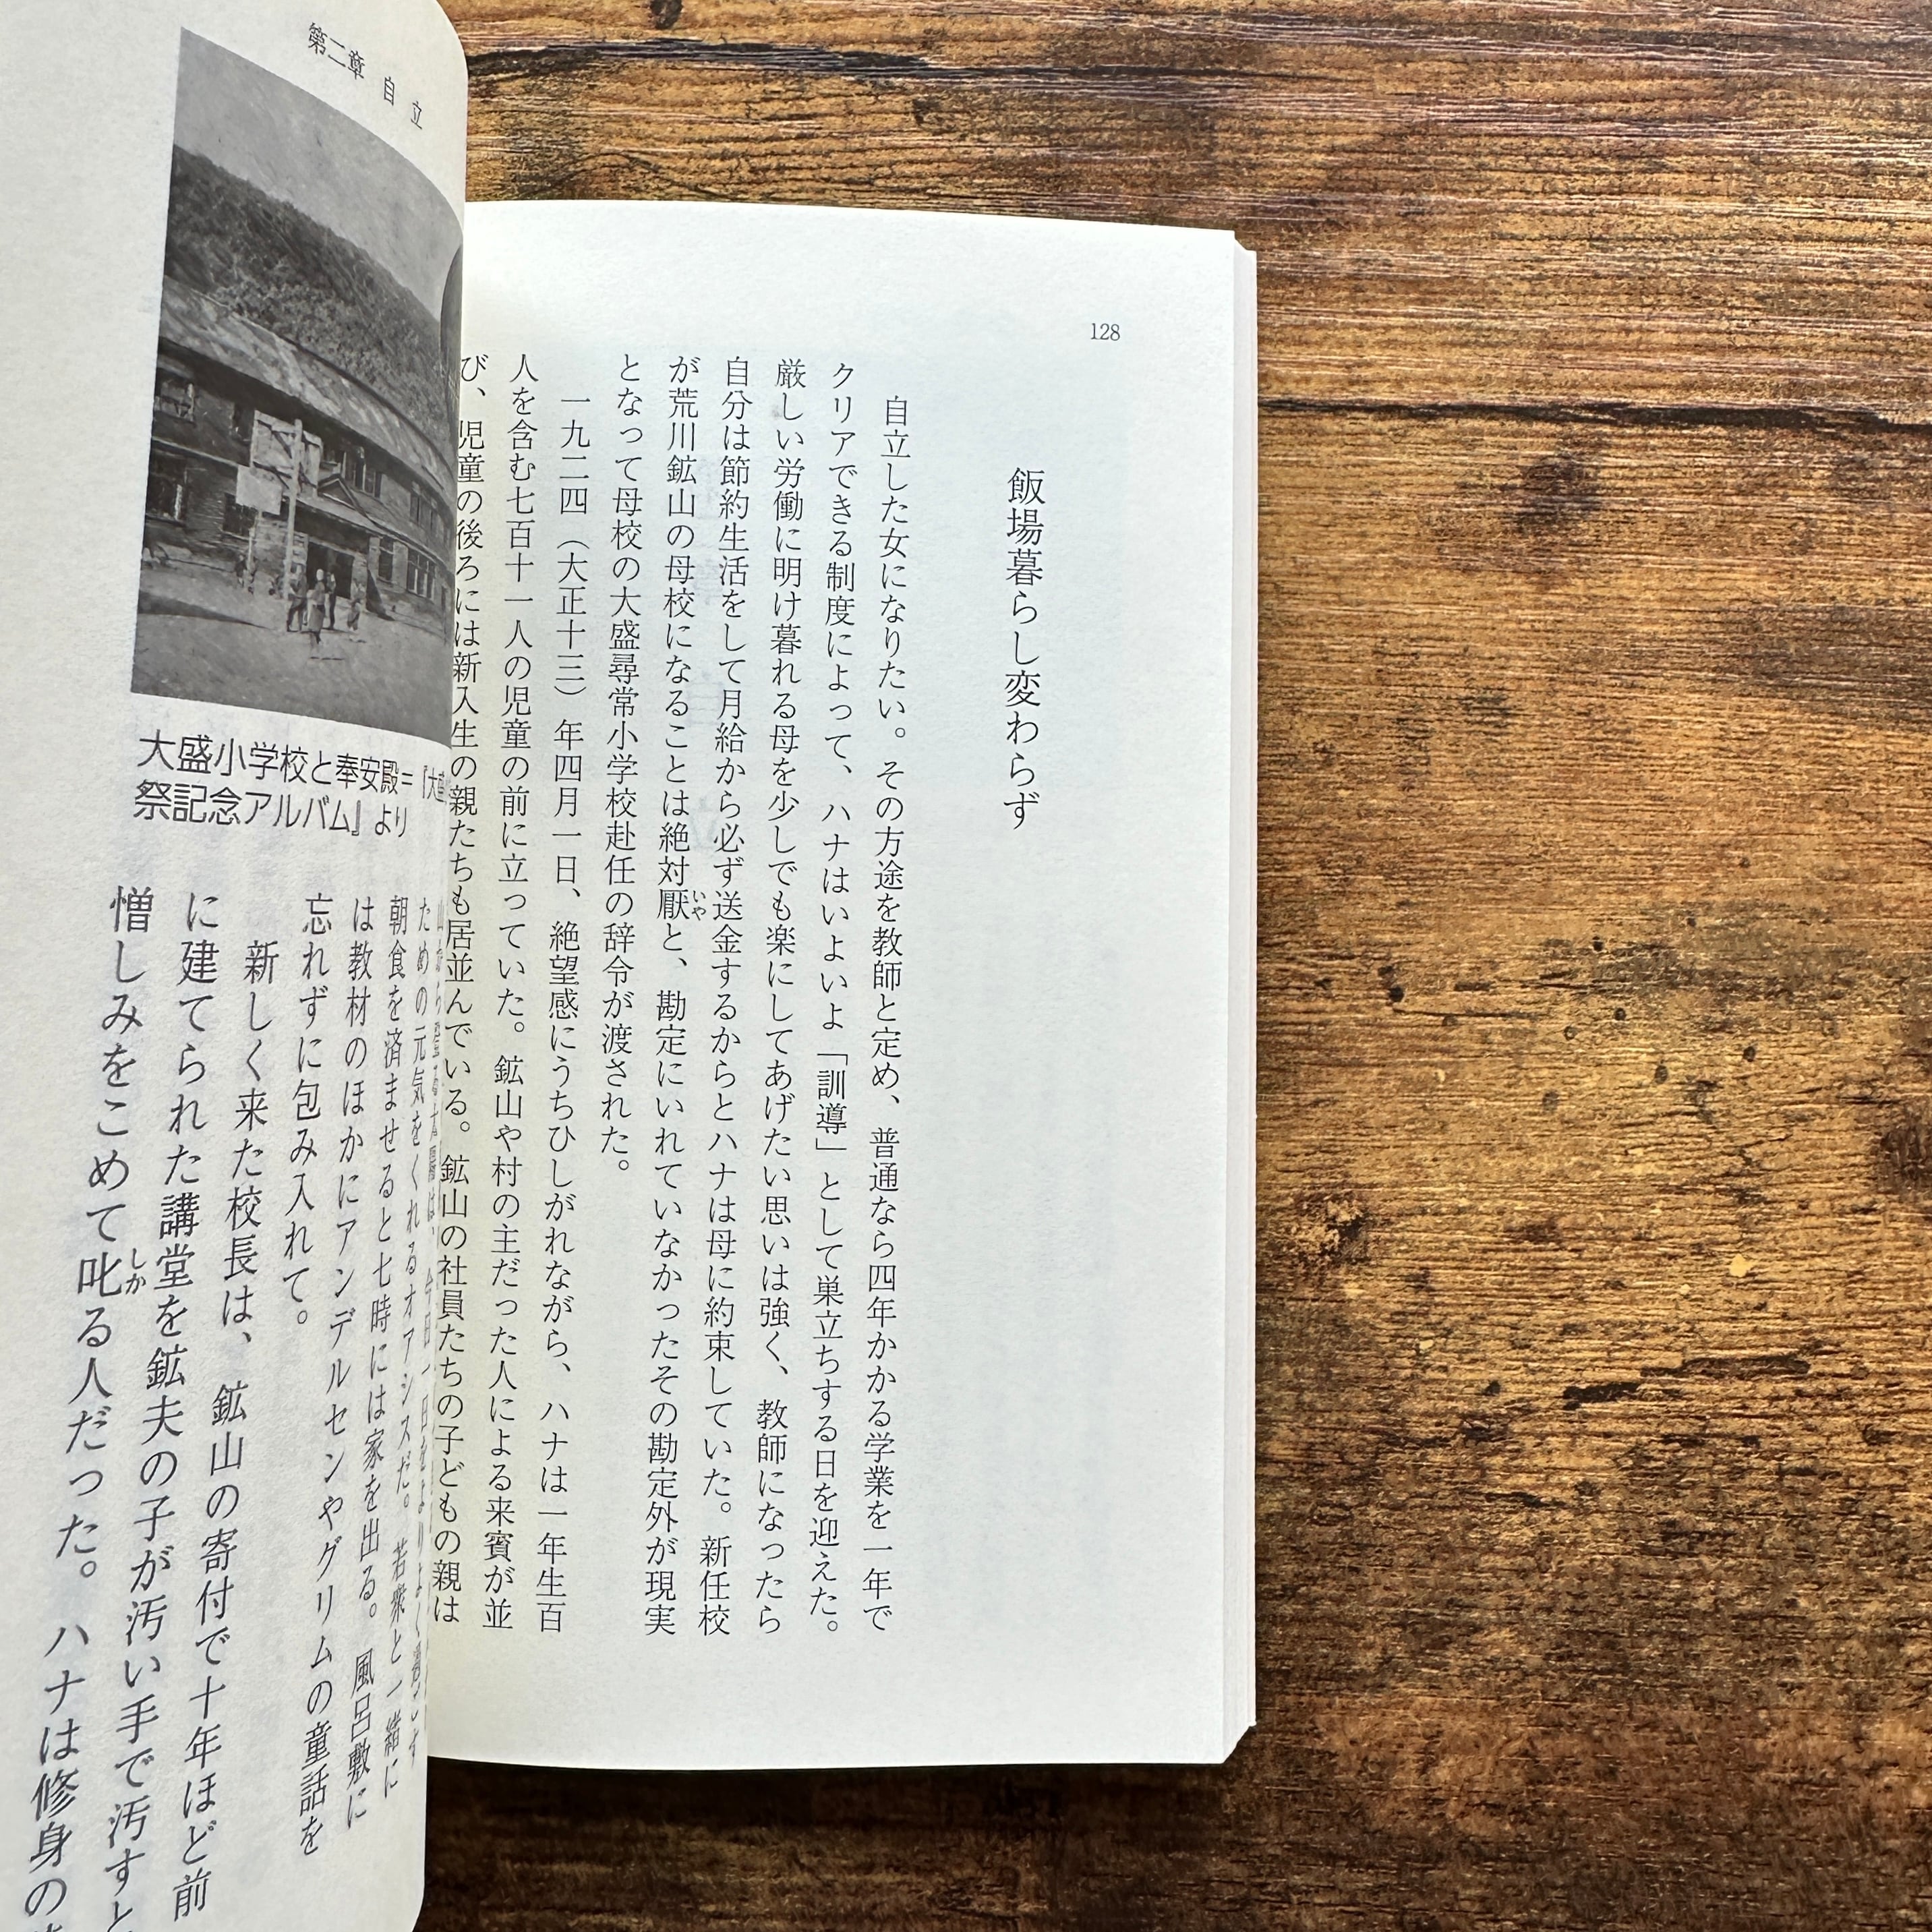 128
飯場暮らし変わらず
自立した女になりたい。その方途を教師と定め、普通なら四年かかる学業を一年で
クリアできる制度によって、ハナはいよいよ「訓導」として巣立ちする日を迎えた。
厳しい労働に明け暮れる母を少しでも楽にしてあげたい思いは強く、教師になったら
自分は節約生活をして月給から必ず送金するからとハナは母に約束していた。新任校
が荒川鉱山の母校になることは絶対厭いやと、勘定にいれていなかったその勘定外が現実
となって母校の大盛尋常小学校赴任の辞令が渡された。
一九二四（大正十三）年四月一日、絶望感にうちひしがれながら、ハナは一年生百
人を含む七百十一人の児童の前に立っていた。鉱山や村の主だった人による来賓が並
び、児童の後ろには新入生の親たちも居並んでいる。鉱山の社員たちの子どもの親は
第二章 自立
大盛小学校と奉安殿＝『大盛
祭記念アルバム』より
ための元気をくれるオアシスだ。若衆と一緒に
朝食を済ませると七時には家を出る。風呂敷に
は教材のほかにアンデルセンやグリムの童話を
忘れずに包み入れて。
新しく来た校長は、鉱山の寄付で十年ほど前
に建てられた講堂を鉱夫の子が汚い手で汚すと
憎しみをこめて叱しかる人だった。ハナは修身の